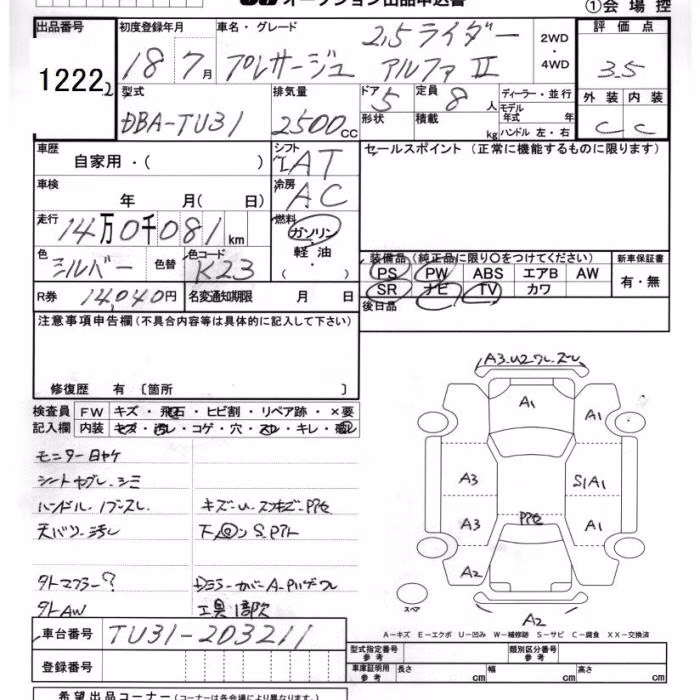 オークション出品申込書
①会場控
出品番号
1222 2
初度登録年月
18 7月
車名・グレード
プレサージュ
2,5 ライダー
アルファⅡ
2WD
・
4WD
評価点
3.5
外装 内装
C C
型式
DBA-TU31
排気量
2500cc
ドア 5
形状
定員 8人
積載 kg
ディーラー・並行
モデル
年式 年
ハンドル 左・右
車歴
自家用・( )
シフト
IAT
セールスポイント (正常に機能するものに限ります)
車検
年 月( 日)
冷房
AC
走行
14万0千081km
燃料
ガソリン
・
軽油
( ・ )
色
シルバー
色替
色コード
K23
装備品(純正品に限り〇をつけてください)
PS PW ABS エアB AW
SR ナビ TV カワ
新車保証書
有・無
R券 14,040円
名変通知期限 月 日
後日品
注意事項申告欄(不具合内容等は具体的に記入して下さい)
修復歴 有 〔箇所 〕
検査員 FW キズ・飛石・ヒビ割・リペア跡・×要
記入欄 内装 キズ・汚レ・コゲ・穴・スレ・キレ・
モニター日ヤケ
シートヤブレ、シミ
ハンドル、
天バリ、汚し
外マフラー?
外AW
工具
A3.U2
A1
A1
A3
S1A1
A3
A1
A2
A2
スペア
A−キズ E−エクボ U−凹み W−補修跡 S−サビ C−腐食 XX−交換済
車台番号 TU31-203211
登録番号
型式指定番号
参考
類別区分番号
参考
車庫証明用
参考
長さ cm 幅 cm 高さ cm
希望出品コーナー(コーナーは各会場により異なります)